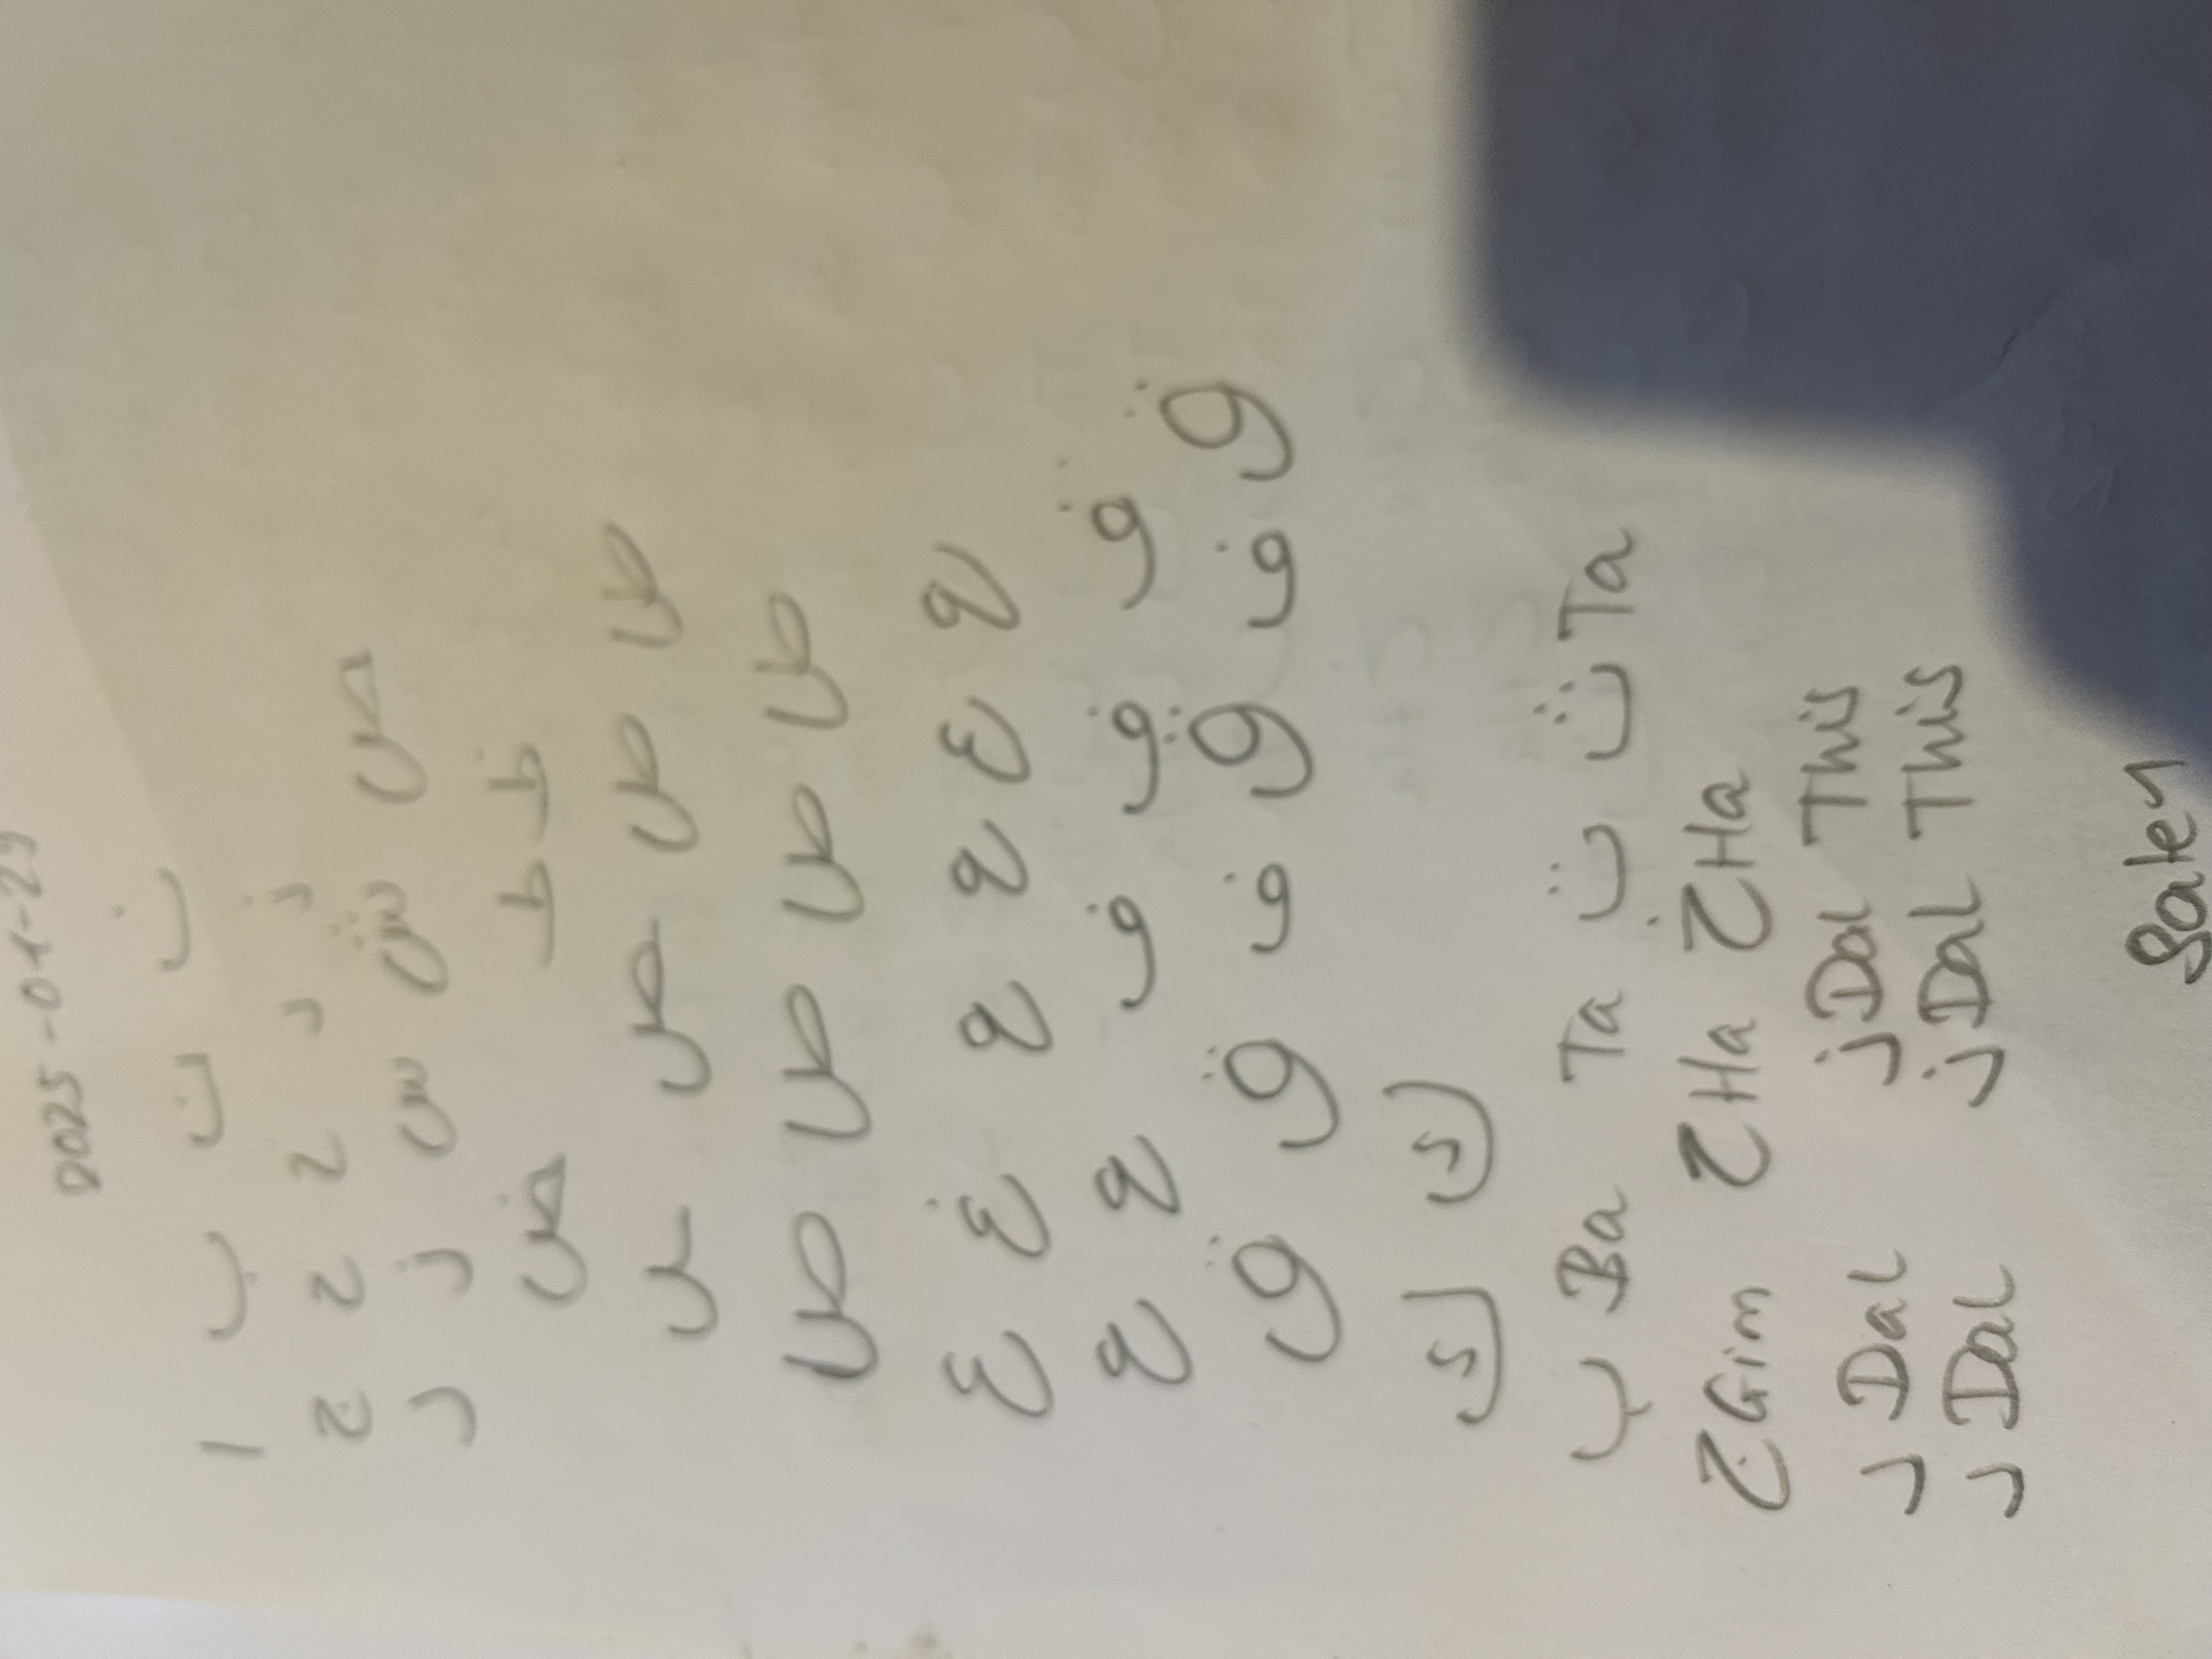 2025-01-29
ا ب ت ث
ج ح خ د ذ
ر ز س ش ص
ض ط ظ
ص ص ص
ص ص ص ص
ع غ ع ع ع ع
ع ع ف ف ف
ق ق ف ق ف ق
ك ك
ب Ba Ta ت ث Ta
ج Gim ح Ha خ Ha
د Dal ذ Dal This
د Dal ذ Dal This